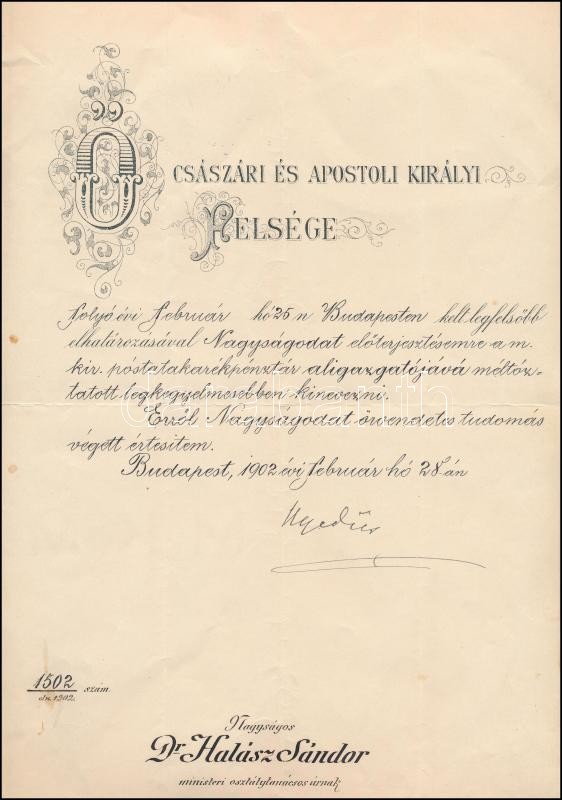 Ő CSÁSZÁRI ÉS APOSTOLI KIRÁLYI
FELSÉGE
folyó évi február hó 25 n Budapesten kelt legfelsőbb
elhatározásával Nagyságodat előterjesztésemre a m.
kir. póstatakarékpénztár aligazgatójává méltóz-
tatott legkegyelmesebben kinevezni.
Erről Nagyságodat örvendetes tudomás
végett értesítem.
Budapest, 1902 évi február hó 28-án
Hegedüs
1502 szám
eln. 1902.
Nagyságos
Dr Halász Sándor
ministeri osztálytanácsos úrnak